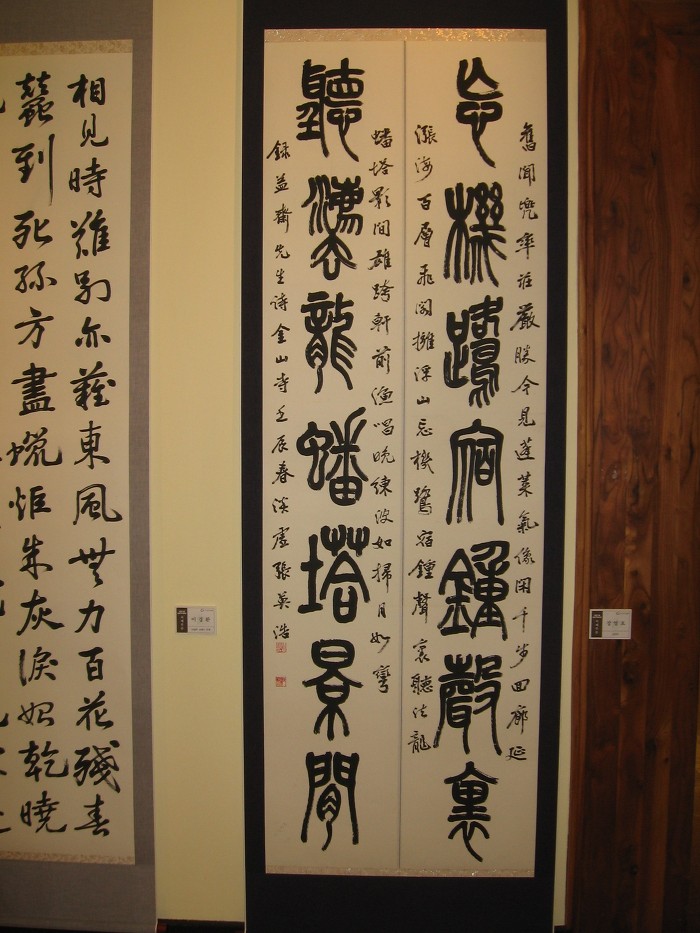 舊聞兜率莊嚴勝今見蓬萊氣像閑千步回廊延
忘機鷺宿鐘聲裏
漲海百層飛閣擁浮山忘機鷺宿鐘聲裏聽法龍
蟠塔影間雄跨軒前漁唱晚練波如掃月如彎
聽灋龍蟠塔景間
錄益齋先生詩金山寺壬辰春淡虛張英浩
相見時難別亦難東風無力百花殘春
蠶到死絲方盡蠟炬成灰淚始乾曉